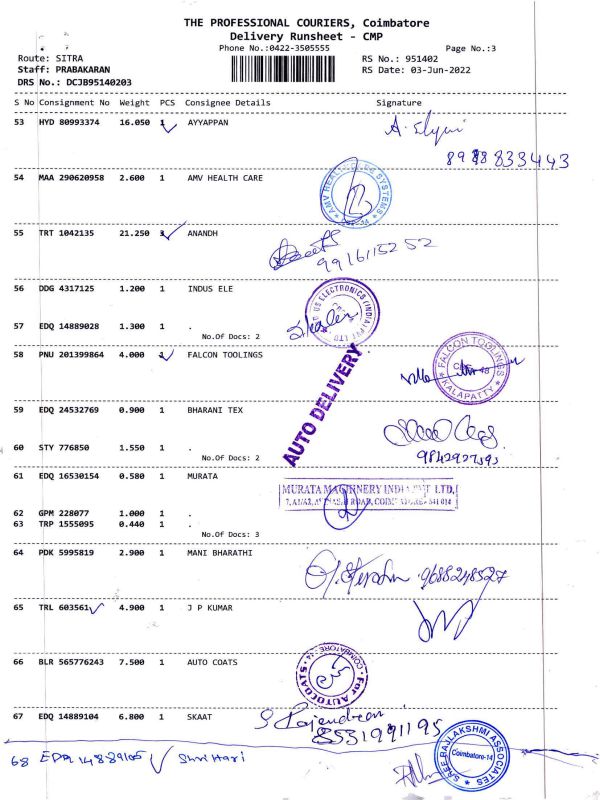 THE PROFESSIONAL COURIERS, Coimbatore
Delivery Runsheet - CMP
Phone No.:0422-3505555 Page No.:3
Route: SITRA RS No.: 951402
Staff: PRABAKARAN RS Date: 03-Jun-2022
DRS No.: DCJB95140203
S No Consignment No Weight PCS Consignee Details Signature
53 HYD 80993374 16.050 1 AYYAPPAN
8988833443
54 MAA 290620958 2.600 1 AMV HEALTH CARE
AMV HEALTHCARE SYSTEMS
55 TRT 1042135 21.250 3 ANANDH
9916115252
56 DDG 4317125 1.200 1 INDUS ELE
INDUS ELECTRONICS (INDIA) PVT LTD
57 EDQ 14889028 1.300 1 .
No.Of Docs: 2
58 PNU 201399864 4.000 1 FALCON TOOLINGS
FALCON TOOLINGS
CBE - 48
KALAPATTY
AUTO DELIVERY
59 EDQ 24532769 0.900 1 BHARANI TEX
60 STY 776850 1.550 1 .
No.Of Docs: 2
9842927595
61 EDQ 16530154 0.580 1 MURATA
MURATA MACHINERY INDIA PVT LTD,
ROAD, COIMBATORE - 641 014
62 GPM 228077 1.000 1 .
63 TRP 1555095 0.440 1 .
No.Of Docs: 3
64 PDK 5995819 2.900 1 MANI BHARATHI
9688248527
65 TRL 603561 4.900 1 J P KUMAR
66 BLR 565776243 7.500 1 AUTO COATS
For AUTOCOATS
COIMBATORE - 14
67 EDQ 14889104 6.800 1 SKAAT
S Rajendran
8531991195
68 EDQ 14889105 Shri Hari
SREE RAJLAKSHMI ASSOCIATES
Coimbatore-14